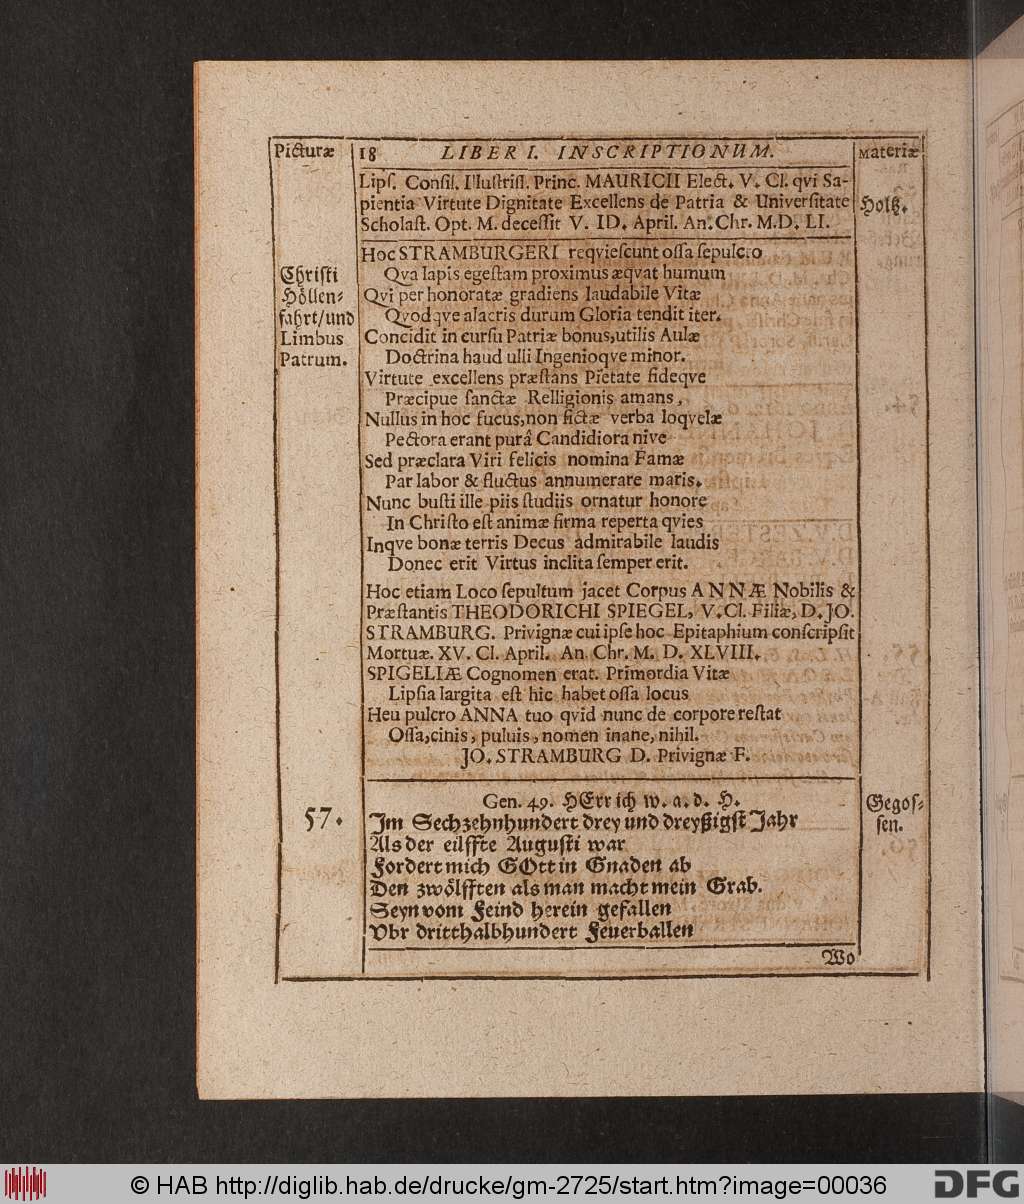 Picturæ
18 LIBER I. INSCRIPTIONUM.
Materiæ
Lipſ. Conſil. Illuſtriſſ. Princ. MAURICII Elect. V. Cl. qvi Sa-
pientia Virtute Dignitate Excellens de Patria & Univerſitate
Scholaſt. Opt. M. deceſſit V. ID. April. An. Chr. M.D. LI.
Holtz.
Chriſti
Höllen-
fahrt/und
Limbus
Patrum.
Hoc STRAMBURGERI reqvieſcunt oſſa ſepulcro
Qva lapis egeſtam proximus æqvat humum
Qvi per honoratæ gradiens laudabile Vitæ
Qvodqve alacris durum Gloria tendit iter.
Concidit in curſu Patriæ bonus, utilis Aulæ
Doctrina haud ulli Ingenioqve minor.
Virtute excellens præſtans Pietate fideqve
Præcipue ſanctæ Relligionis amans,
Nullus in hoc fucus, non fictæ verba loqvelæ
Pectora erant purâ Candidiora nive
Sed præclara Viri felicis nomina Famæ
Par labor & fluctus annumerare maris.
Nunc buſti ille piis ſtudiis ornatur honore
In Chriſto eſt animæ firma reperta qvies
Inqve bonæ terris Decus admirabile laudis
Donec erit Virtus inclita ſemper erit.
Hoc etiam Loco ſepultum jacet Corpus ANNÆ Nobilis &
Præſtantis THEODORICHI SPIEGEL, V. Cl. Filiæ, D. JO.
STRAMBURG. Privignæ cui ipſe hoc Epitaphium conſcripſit
Mortuæ. XV. Cl. April. An. Chr. M. D. XLVIII.
SPIGELIÆ Cognomen erat. Primordia Vitæ
Lipſia largita eſt hic habet oſſa locus
Heu pulcro ANNA tuo qvid nunc de corpore reſtat
Oſſa, cinis, puluis, nomen inane, nihil.
JO. STRAMBURG D. Privignæ F.
57.
Gen. 49. HErr ich w. a. d. H.
Im Sechzehnhundert drey und dreyßigſt Jahr
Als der eilffte Auguſti war
Fordert mich GOtt in Gnaden ab
Den zwölfften als man macht mein Grab.
Seyn vom Feind herein gefallen
Vbr dritthalbhundert Feuerballen
Gegoſ-
ſen.
Wo
© HAB http://diglib.hab.de/drucke/gm-2725/start.htm?image=00036
DFG